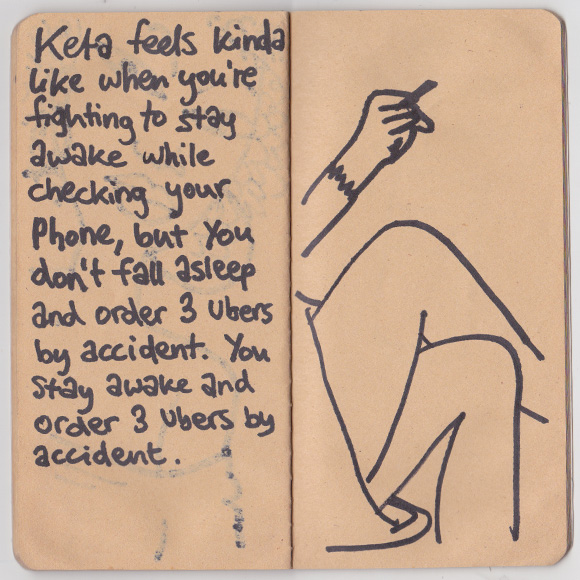 Keta feels kinda
like when you're
fighting to stay
awake while
checking your
Phone, but You
don't fall asleep
and order 3 Ubers
by accident. You
stay awake and
order 3 Ubers by
accident.